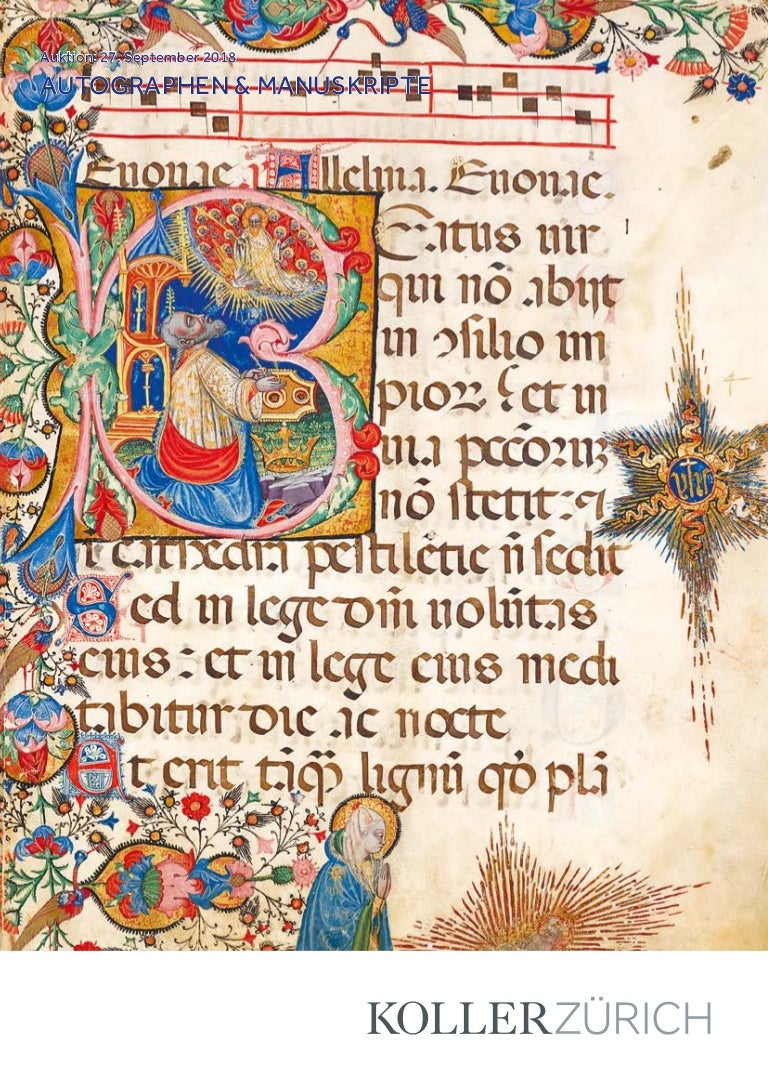 Auktion: 27. September 2018
AUTOGRAPHEN & MANUSKRIPTE
Euouae. Alleluia. Euouae.
Beatus uir
qui nō abijt
in ɔsilio im
pioꝝ ⁊ et in
uia pccōꝝ
nō stetit: ⁊ i
cathedra pestilētie ñ sedit
Sed in lege dm̄ uolūtas
eius: et in lege eius medi
tabitur die ac nocte
Et erit tāq̄ lignū qđ plā
yhs
KOLLERZÜRICH